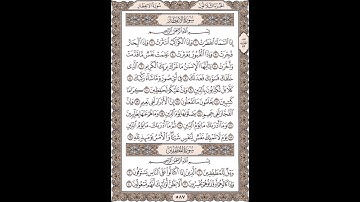 الجزء الثلاثون سورة الانفطار
سُورَةُ الانفِطَارِ
بِسْمِ ٱللَّهِ ٱلرَّحْمَٰنِ ٱلرَّحِيمِ
إِذَا ٱلسَّمَآءُ ٱنفَطَرَتْ ١ وَإِذَا ٱلْكَوَاكِبُ ٱنتَثَرَتْ ٢ وَإِذَا ٱلْبِحَارُ
فُجِّرَتْ ٣ وَإِذَا ٱلْقُبُورُ بُعْثِرَتْ ٤ عَلِمَتْ نَفْسٌ مَّا قَدَّمَتْ
وَأَخَّرَتْ ٥ يَٰٓأَيُّهَا ٱلْإِنسَٰنُ مَا غَرَّكَ بِرَبِّكَ ٱلْكَرِيمِ ٦ ٱلَّذِى
خَلَقَكَ فَسَوَّىٰكَ فَعَدَلَكَ ٧ فِىٓ أَىِّ صُورَةٍ مَّا شَآءَ رَكَّبَكَ ٨
كَلَّا بَلْ تُكَذِّبُونَ بِٱلدِّينِ ٩ وَإِنَّ عَلَيْكُمْ لَحَٰفِظِينَ ١٠ كِرَامًا
كَٰتِبِينَ ١١ يَعْلَمُونَ مَا تَفْعَلُونَ ١٢ إِنَّ ٱلْأَبْرَارَ لَفِى نَعِيمٍ ١٣ وَإِنَّ
ٱلْفُجَّارَ لَفِى جَحِيمٍ ١٤ يَصْلَوْنَهَا يَوْمَ ٱلدِّينِ ١٥ وَمَا هُمْ عَنْهَا بِغَآئِبِينَ ١٦
وَمَآ أَدْرَىٰكَ مَا يَوْمُ ٱلدِّينِ ١٧ ثُمَّ مَآ أَدْرَىٰكَ مَا يَوْمُ ٱلدِّينِ ١٨
يَوْمَ لَا تَمْلِكُ نَفْسٌ لِّنَفْسٍ شَيْـًٔا وَٱلْأَمْرُ يَوْمَئِذٍ لِّلَّهِ ١٩
سُورَةُ المُطَفِّفِينَ
بِسْمِ ٱللَّهِ ٱلرَّحْمَٰنِ ٱلرَّحِيمِ
وَيْلٌ لِّلْمُطَفِّفِينَ ١ ٱلَّذِينَ إِذَا ٱكْتَالُوا۟ عَلَى ٱلنَّاسِ يَسْتَوْفُونَ ٢
وَإِذَا كَالُوهُمْ أَو وَّزَنُوهُمْ يُخْسِرُونَ ٣ أَلَا يَظُنُّ أُو۟لَٰٓئِكَ أَنَّهُم مَّبْعُوثُونَ ٤
٥٨٧